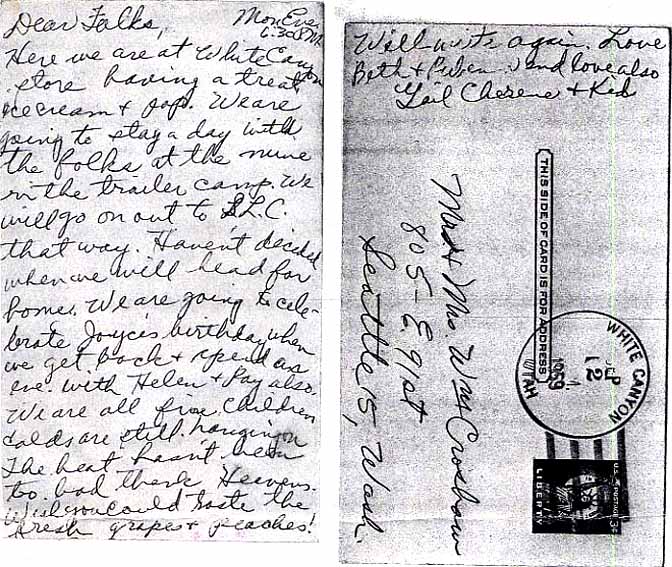 Dear Folks,
Mon Eve
6:30 P.M.
Here we are at White Canyon
store having a treat
ice cream + pop. We are
going to stay a day with
the folks at the mine
in the trailer camp. We
will go on out to S.L.C.
that way. Haven't decided
when we will head for
home. We are going to cele-
brate Joyce's birthday when
we get back + spend an
eve. with Helen + Ray also.
We are all fine. Children
colds are still hanging on
The heat hasn't been
to bad thank Heavens.
Wish you could taste the
fresh grapes + peaches!
Will write again. Love
Beth + Ruben and love also
Gail Cherene + Kid
THIS SIDE OF CARD IS FOR ADDRESS
Mr + Mrs. Wm Croshaw
805-E. 91st
Seattle 15, Wash.
WHITE CANYON
SEP
12
1959
UTAH
U.S. POSTAGE 3¢
LIBERTY